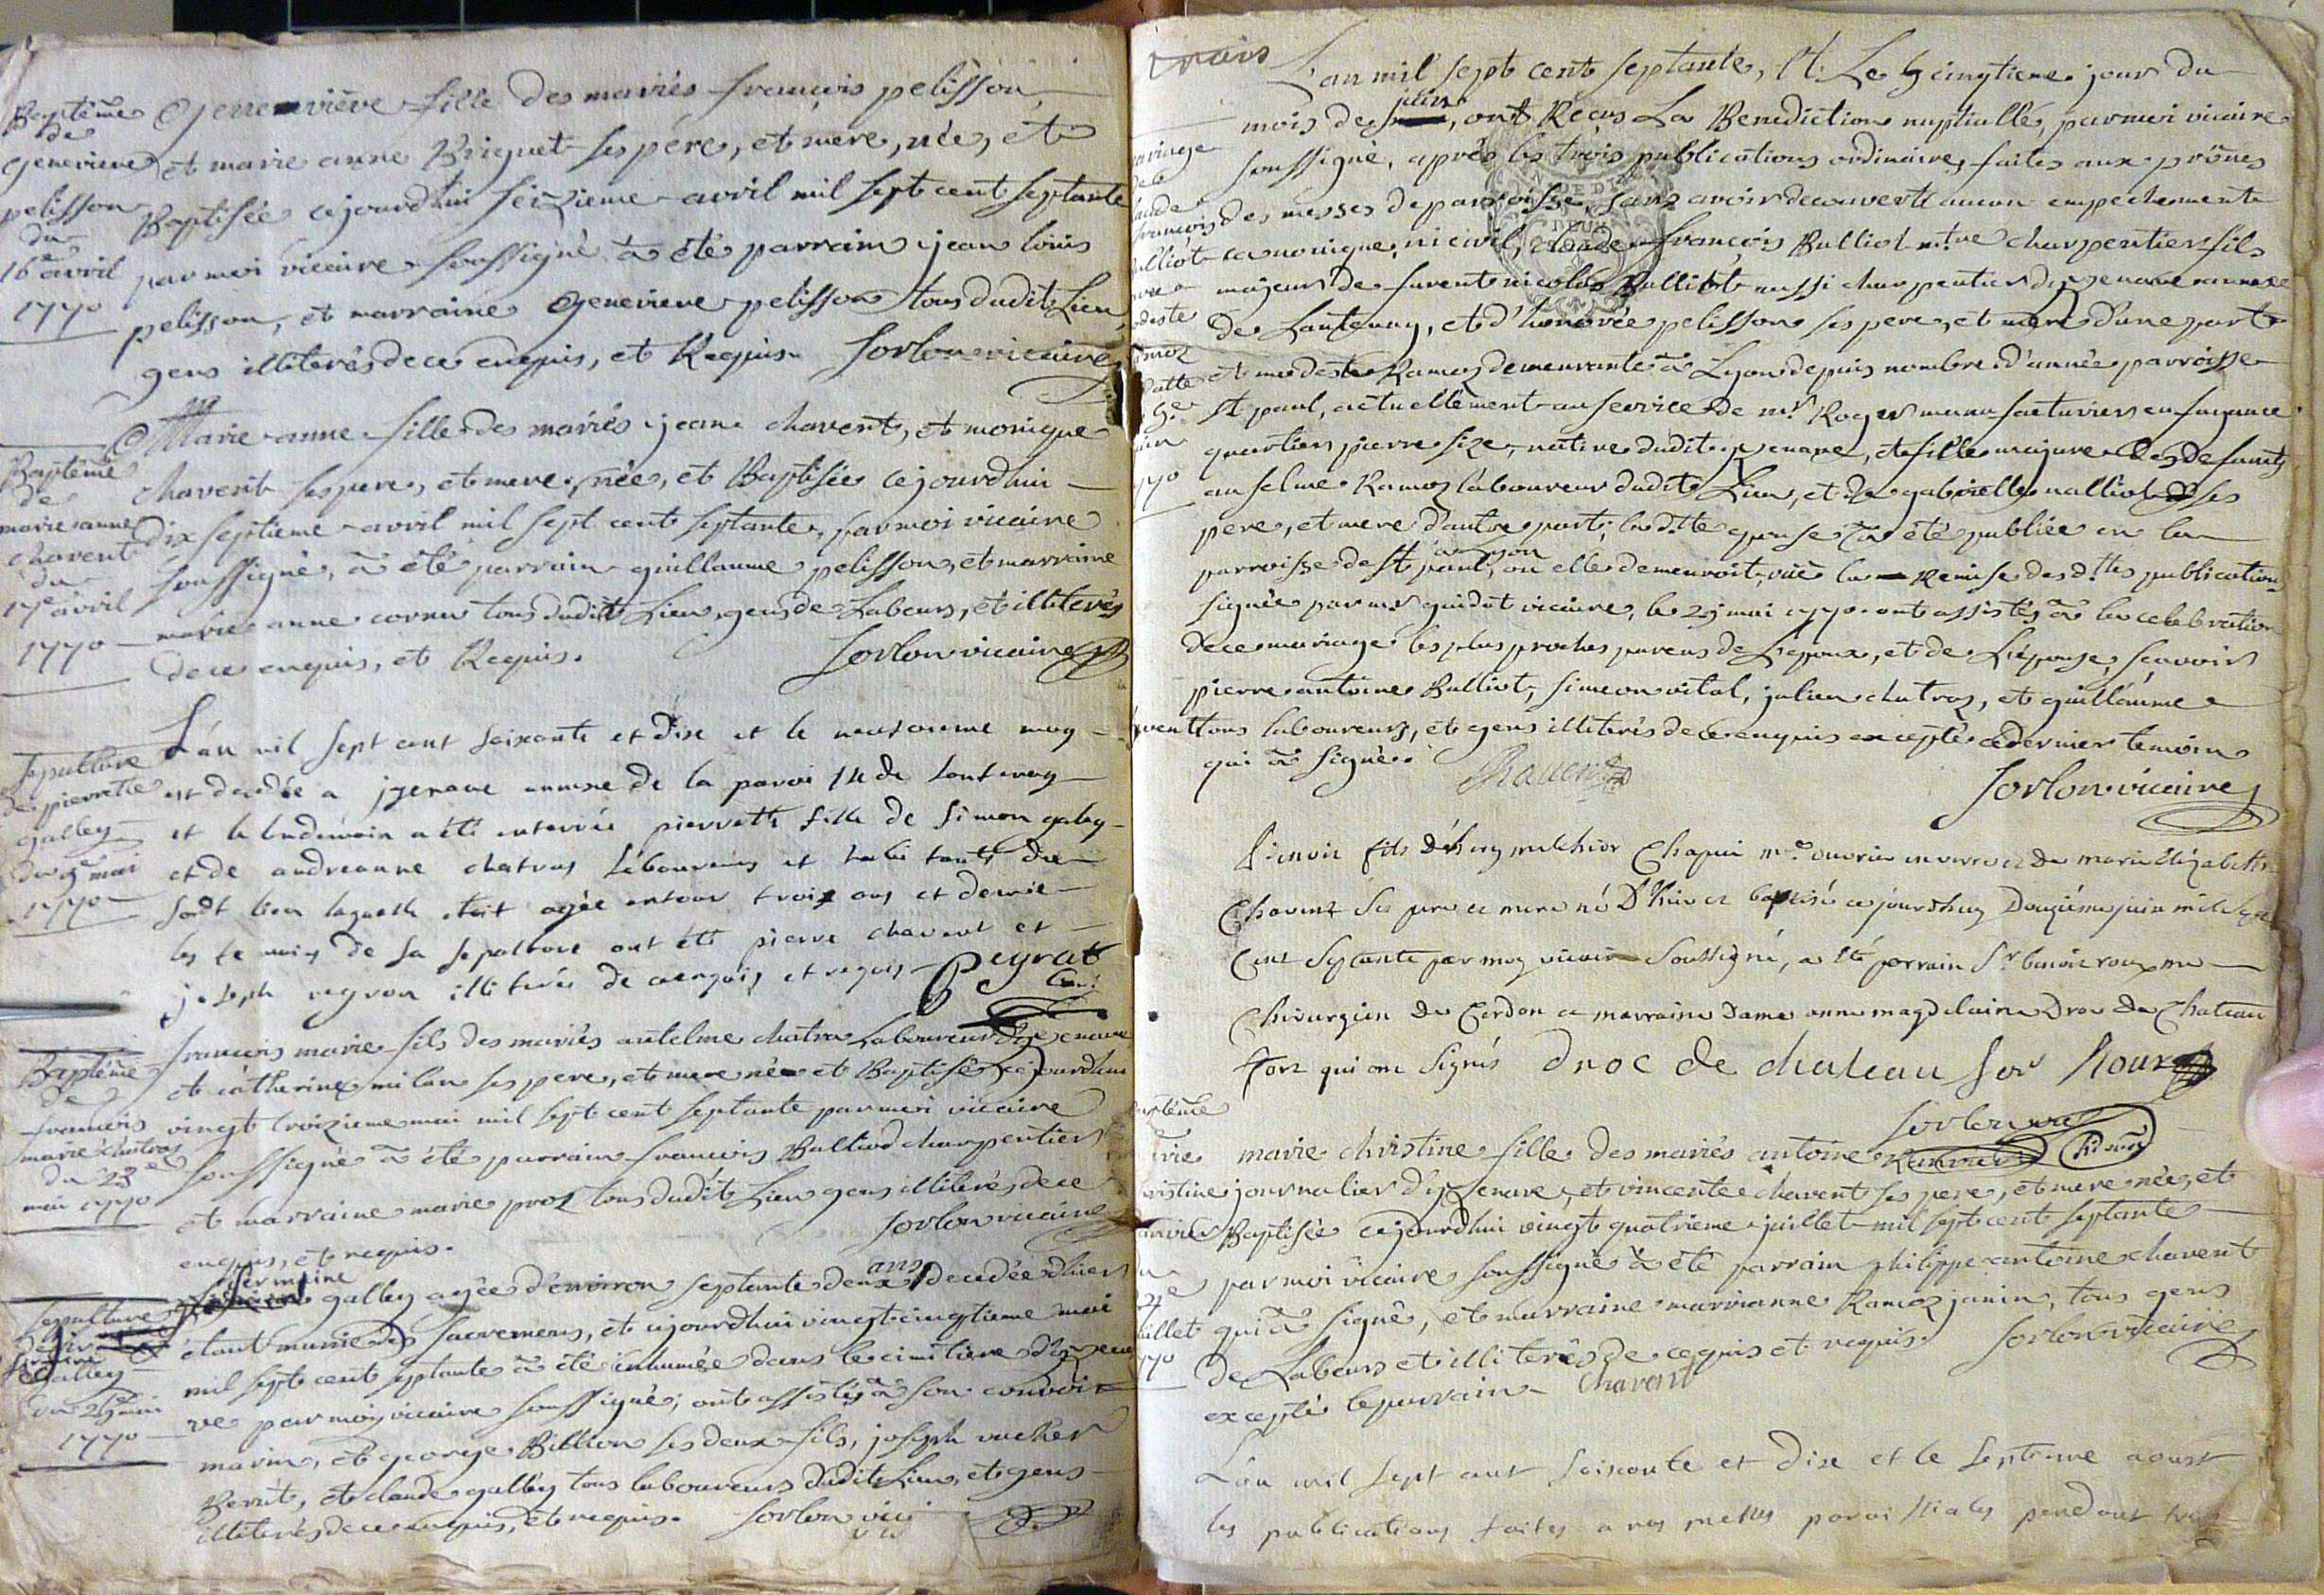 Baptême
de
genevieve
pelisson
du
16e avril
1770
genevière fille des mariés françois pelisson,
et marie anne Briguet ses père, et mere, née, et
Baptisée cejourdhui seizieme avril mil sept cent septante
par moi vicaire soussigné à été parrain jean loüis
pelisson, et marraine genevieve pelisson tous dudit Lieu,
gens illiterés de ce enquis, et Requis. Sorlon vicaire
Baptême
de
marie anne
chavent
du
17e avril
1770
Marie anne fille des mariés jean chavent, et monique
chavent ses pere, et mere, née, et Baptisée cejourdhui
dix septieme avril mil sept cent septante, par moi vicaire
soussigné, à été parrain guillaume pelisson, et marraine
marie anne cornu tous dudit Lieu, gens de Labeurs, et illiterés
de ce enquis, et Requis. Sorlon vicaire
sepulture
de pierrette
galley
du 9e mai
1770
L'an mil sept cent soixante et dix et le neuvieme may
est decedée a izenave annexe de la paroisse de lantenay
et le lendemain a été enterrée pierrette fille de simon galey
et de andreanne chatras laboureurs et habitants du
sudt lieu laquelle etoit agée entour trois ans et demie
les temoins de sa sepulture ont été pierre chavent et
joseph reyron illiterés de ce enquis et requis Peyrat
Curé
Baptême
de
francois
marie chatras
du 23e
mai 1770
francois marie fils des mariés antelme chatra Laboureur d'izenave
et catherine milan ses pere, et mere né et Baptisé cejourdhui
vingt troizieme mai mil sept cent septante par moi vicaire
soussigné à été parrain francois Balliod charpentier
et marraine marie proz tous dudit Lieu gens illiterés de ce
enquis, et requis. Sorlon vicaire
sepulture
de
germaine
galley
du 25e mai
1770
germaine
galley agée d'environ septante deux ans decedée d'hier
étant munie des sacremens, et cejourdhui vingt cinqtieme mai
mil sept cent septante à été inhumée dans le cimitiere d'izena
ve par moi vicaire soussigné; ont assistés à son convoi
marin, et george Billion ses deux fils, joseph vucher
Berut, et claude galley tous laboureurs dudit Lieu, et gens
illiterés de ce enquis, et requis. Sorlon vic
trois
ariage
de
laude
francois
alliot
avec
deste
amoz
datte
5e
uin
770
L'an mil sept cent septante, et Le 5 cinqtieme jour du
mois de juin, ont Reçus La Benediction nuptialle, par moi vicaire
soussigné, après les trois publications ordinaires faites aux prônes
des messes de parroisse, sans avoir decouvert aucun empechement
canonique, ni civil, claude françois Balliot mtre charpentier fils
majeur de furent nicolas Balliot aussi charpentier d'yzenave annexe
de Lantenay, et d'honorée pelisson ses pere, et mere d'une part
et modeste Ramoz demeurante à Lyon depuis nombre d'année parroisse
st paul, actuellement au service de mr Roger manufacturier en fayance
quartier pierre size, native dudit yzenave, et fille majure des defunts
anselme Ramoz laboureur dudit Lieu, et de gabrielle nalliod ses
pere, et mere d'autre part; laditte epouse à été publiée en la
parroisse de st paul, à lyon où elle demeuroit, vüe la Remise des dittes publications
signée par mr guidot vicaire, le 29 mai 1770. ont assistés à la celebration
de ce mariage les plus proches parens de L'epoux, et de L'épouse, sçavoir
pierre antoine Balliot, simeon vital, julien chatras, et guillaume
vent tous laboureurs, et gens illiterés de ce enquis excepté ce dernier temoin
qui à signé. Chavent
Sorlon vicaire
Benoit fils d'hugues melchior Chapui me ouvrier en verre et de marie Elizabeth
Chavent ses pere et mere né D'hier et baptisé ce jourdhuy Douzième juin mil sept
Cent septante par moy vicaire soussigné, a été parrain Sr benoit roux me
Chirurgien de Cerdon et marraine Dame anne magdelaine Droc de Chateau
fort qui ont signés Droc de chateau for Roux
Sorlon vic
aptême
arie
ristine
anvier
24e
uillet
770
marie christine fille des mariés antoine Ramier
journalier d'yzenave, et vincente chavent ses pere, et mere née, et
Baptisée cejourdhui vingt quatrieme juillet mil sept cent septante
par moi vicaire soussigné à été parrain philippe antoine chavent
qui à signé, et marraine marianne Ramoz janin, tous gens
de Labeurs et illiterés de ce quis et requis. Sorlon vicaire
excepté le parrain Chavent
L'an mil sept cent soixante et dix et le septieme aoust
les publications faites a nos messes paroissiales pendant trois